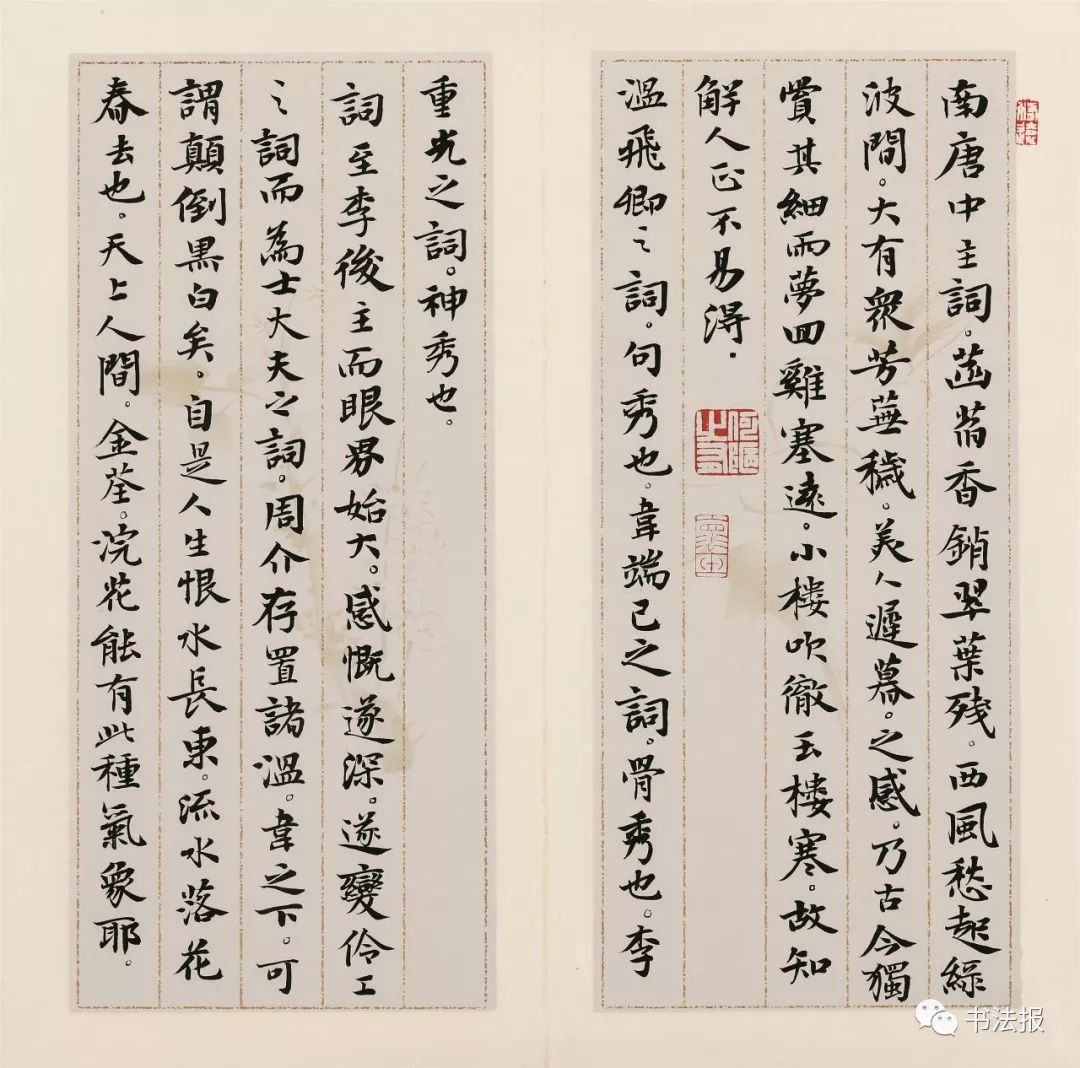 南唐中主詞。菡萏香銷翠葉殘。西風愁起綠
波間。大有衆芳蕪穢。美人遲暮。之感。乃古今獨
賞其細雨夢回雞塞遠。小樓吹徹玉樓寒。故知
解人正不易得。
溫飛卿之詞。句秀也。韋端己之詞。骨秀也。李
重光之詞。神秀也。
詞至李後主而眼界始大。感慨遂深。遂變伶工
之詞而為士大夫之詞。周介存置諸溫。韋之下。可
謂顛倒黑白矣。自是人生恨水長東。流水落花
春去也。天上人間。金荃。浣花能有此種氣象耶。
书法报